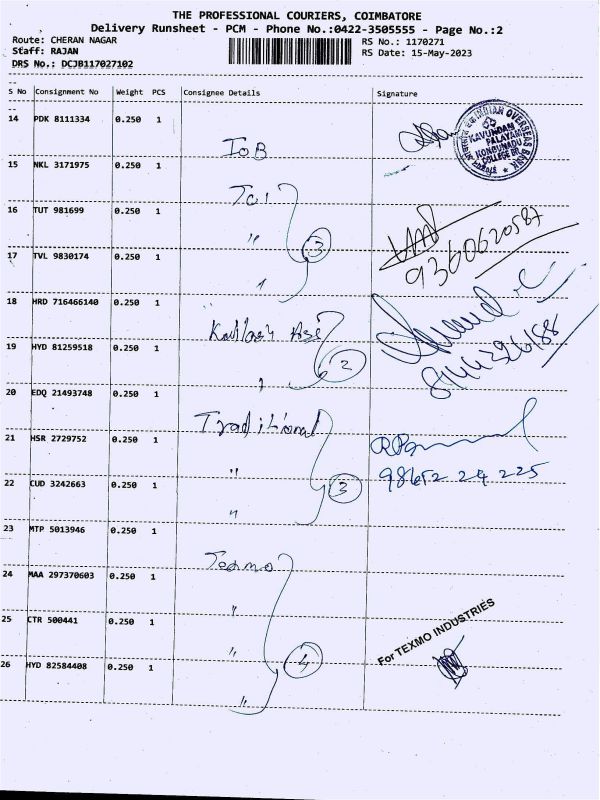 THE PROFESSIONAL COURIERS, COIMBATORE
Delivery Runsheet - PCM - Phone No.:0422-3505555 - Page No.:2
Route: CHERAN NAGAR
RS No.: 1170271
Staff: RAJAN
RS Date: 15-May-2023
DRS No.: DCJB117027102
S No Consignment No Weight PCS Consignee Details Signature
14 PDK 8111334 0.250 1 IOB
INDIAN OVERSEAS BANK
KAVUNDAM
PALAYAM
KONGUNADU
COLLEGE BR.
15 NKL 3171975 0.250 1
16 TUT 981699 0.250 1 "
17 TVL 9830174 0.250 1 "
3
18 HRD 716466140 0.250 1
19 HYD 81259518 0.250 1 "
2
20 EDQ 21493748 0.250 1 Traditional
21 HSR 2729752 0.250 1 "
98652 24 225
22 CUD 3242663 0.250 1 "
3
23 MTP 5013946 0.250 1 Texmo
24 MAA 297370603 0.250 1 "
25 CTR 500441 0.250 1 "
For TEXMO INDUSTRIES
26 HYD 82584408 0.250 1 "
4